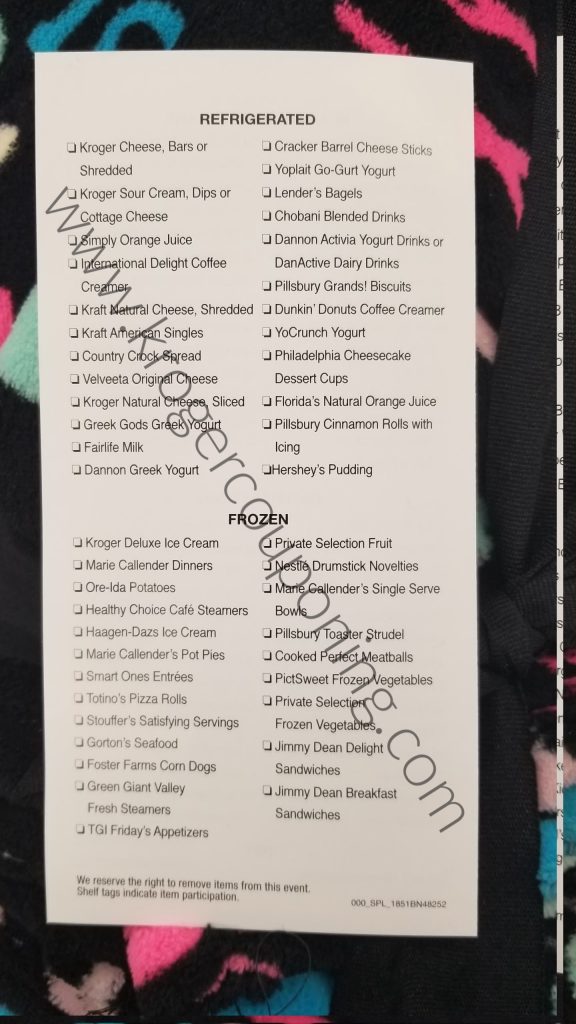 REFRIGERATED
❏ Kroger Cheese, Bars or
Shredded
❏ Kroger Sour Cream, Dips or
Cottage Cheese
❏ Simply Orange Juice
❏ International Delight Coffee
Creamer
❏ Kraft Natural Cheese, Shredded
❏ Kraft American Singles
❏ Country Crock Spread
❏ Velveeta Original Cheese
❏ Kroger Natural Cheese, Sliced
❏ Greek Gods Greek Yogurt
❏ Fairlife Milk
❏ Dannon Greek Yogurt
❏ Cracker Barrel Cheese Sticks
❏ Yoplait Go-Gurt Yogurt
❏ Lender's Bagels
❏ Chobani Blended Drinks
❏ Dannon Activia Yogurt Drinks or
DanActive Dairy Drinks
❏ Pillsbury Grands! Biscuits
❏ Dunkin' Donuts Coffee Creamer
❏ YoCrunch Yogurt
❏ Philadelphia Cheesecake
Dessert Cups
❏ Florida's Natural Orange Juice
❏ Pillsbury Cinnamon Rolls with
Icing
❏Hershey's Pudding
FROZEN
❏ Kroger Deluxe Ice Cream
❏ Marie Callender Dinners
❏ Ore-Ida Potatoes
❏ Healthy Choice Café Steamers
❏ Haagen-Dazs Ice Cream
❏ Marie Callender's Pot Pies
❏ Smart Ones Entrées
❏ Totino's Pizza Rolls
❏ Stouffer's Satisfying Servings
❏ Gorton's Seafood
❏ Foster Farms Corn Dogs
❏ Green Giant Valley
Fresh Steamers
❏ TGI Friday's Appetizers
❏ Private Selection Fruit
❏ Nestlé Drumstick Novelties
❏ Marie Callender's Single Serve
Bowls
❏ Pillsbury Toaster Strudel
❏ Cooked Perfect Meatballs
❏ PictSweet Frozen Vegetables
❏ Private Selection
Frozen Vegetables
❏ Jimmy Dean Delight
Sandwiches
❏ Jimmy Dean Breakfast
Sandwiches
We reserve the right to remove items from this event.
Shelf tags indicate item participation.
000_SPL_1851BN48252
www.krogercouponing.com